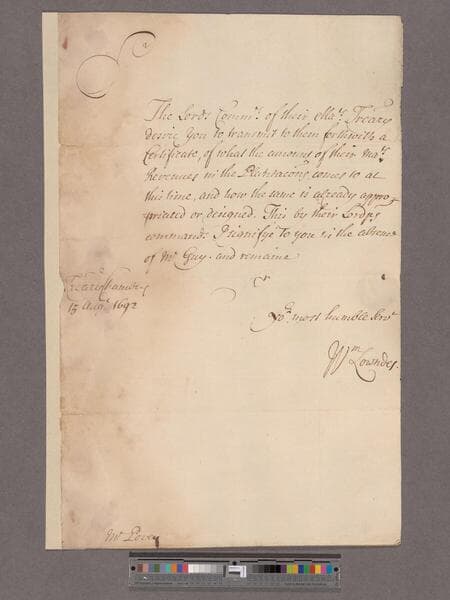 Sr
The Lords Commrs of their Mats Treary
desire you to transmit to them forthwith a
Certificate, of what the amount of their Mats
Revenues in the Plantacons comes to at
this time, and how the same is already appro
priated or designed. This by their Lordps
command: I signifye to you in the absence
of Mr Guy. and remaine
Sr
Trea͏ry Chambers
15 Augt 1692
Yor most humble Servt
Wm Lowndes.
Mr Povey